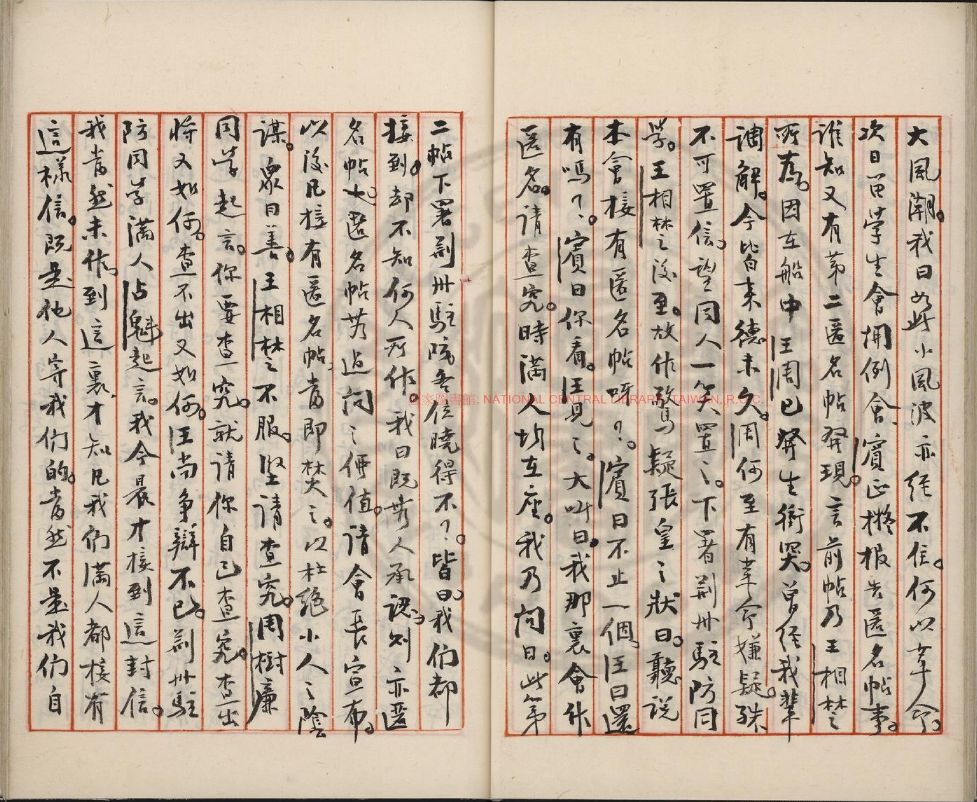 大風潮。我曰。如此小風波亦經不住。何以革命。
次日留學生會開例會。賓正擬報告匿名帖事。
誰知又有第二匿名帖發現。言前帖乃王相楚
所為。因在船中王周已發生衝突。曾經我輩
調解。今皆來德未久。周何至有革命嫌疑。殊
不可置信。望同人一笑置之。下署荊州駐防同
學。王相楚之後至。故作驚疑張皇之狀曰。聽說
本會接有匿名帖呀?。賓曰不止一個。王曰還
有嗎?。賓曰你看。王見之。大叫曰。我那裏會作
匿名。請查究。時滿人均在座。我乃問曰。此第
二帖下署荊州駐防各位曉得不?。皆曰。我們都
接到。却不知何人所作。我曰既無人承認。則亦匿
名帖也。匿名帖無過問之價值。請會長宣布。
以後凡接有匿名帖者即焚之。以杜絕小人之陰
謀。眾曰善。王相楚之不服。堅請查究。周樹廉
同學起言。你要查究。就請你自己查究。查出
將又如何。查不出又如何。王尚爭辯不已。荊州駐
防同學滿人占魁起言。我今晨才接到這封信。
我當然未作。到這裏才知凡我們滿人都接有
這樣信。既是他人寄我們的。當然不是我們自
國家圖書館. NATIONAL CENTRAL LIBRARY, TAIWAN, R.O.C.